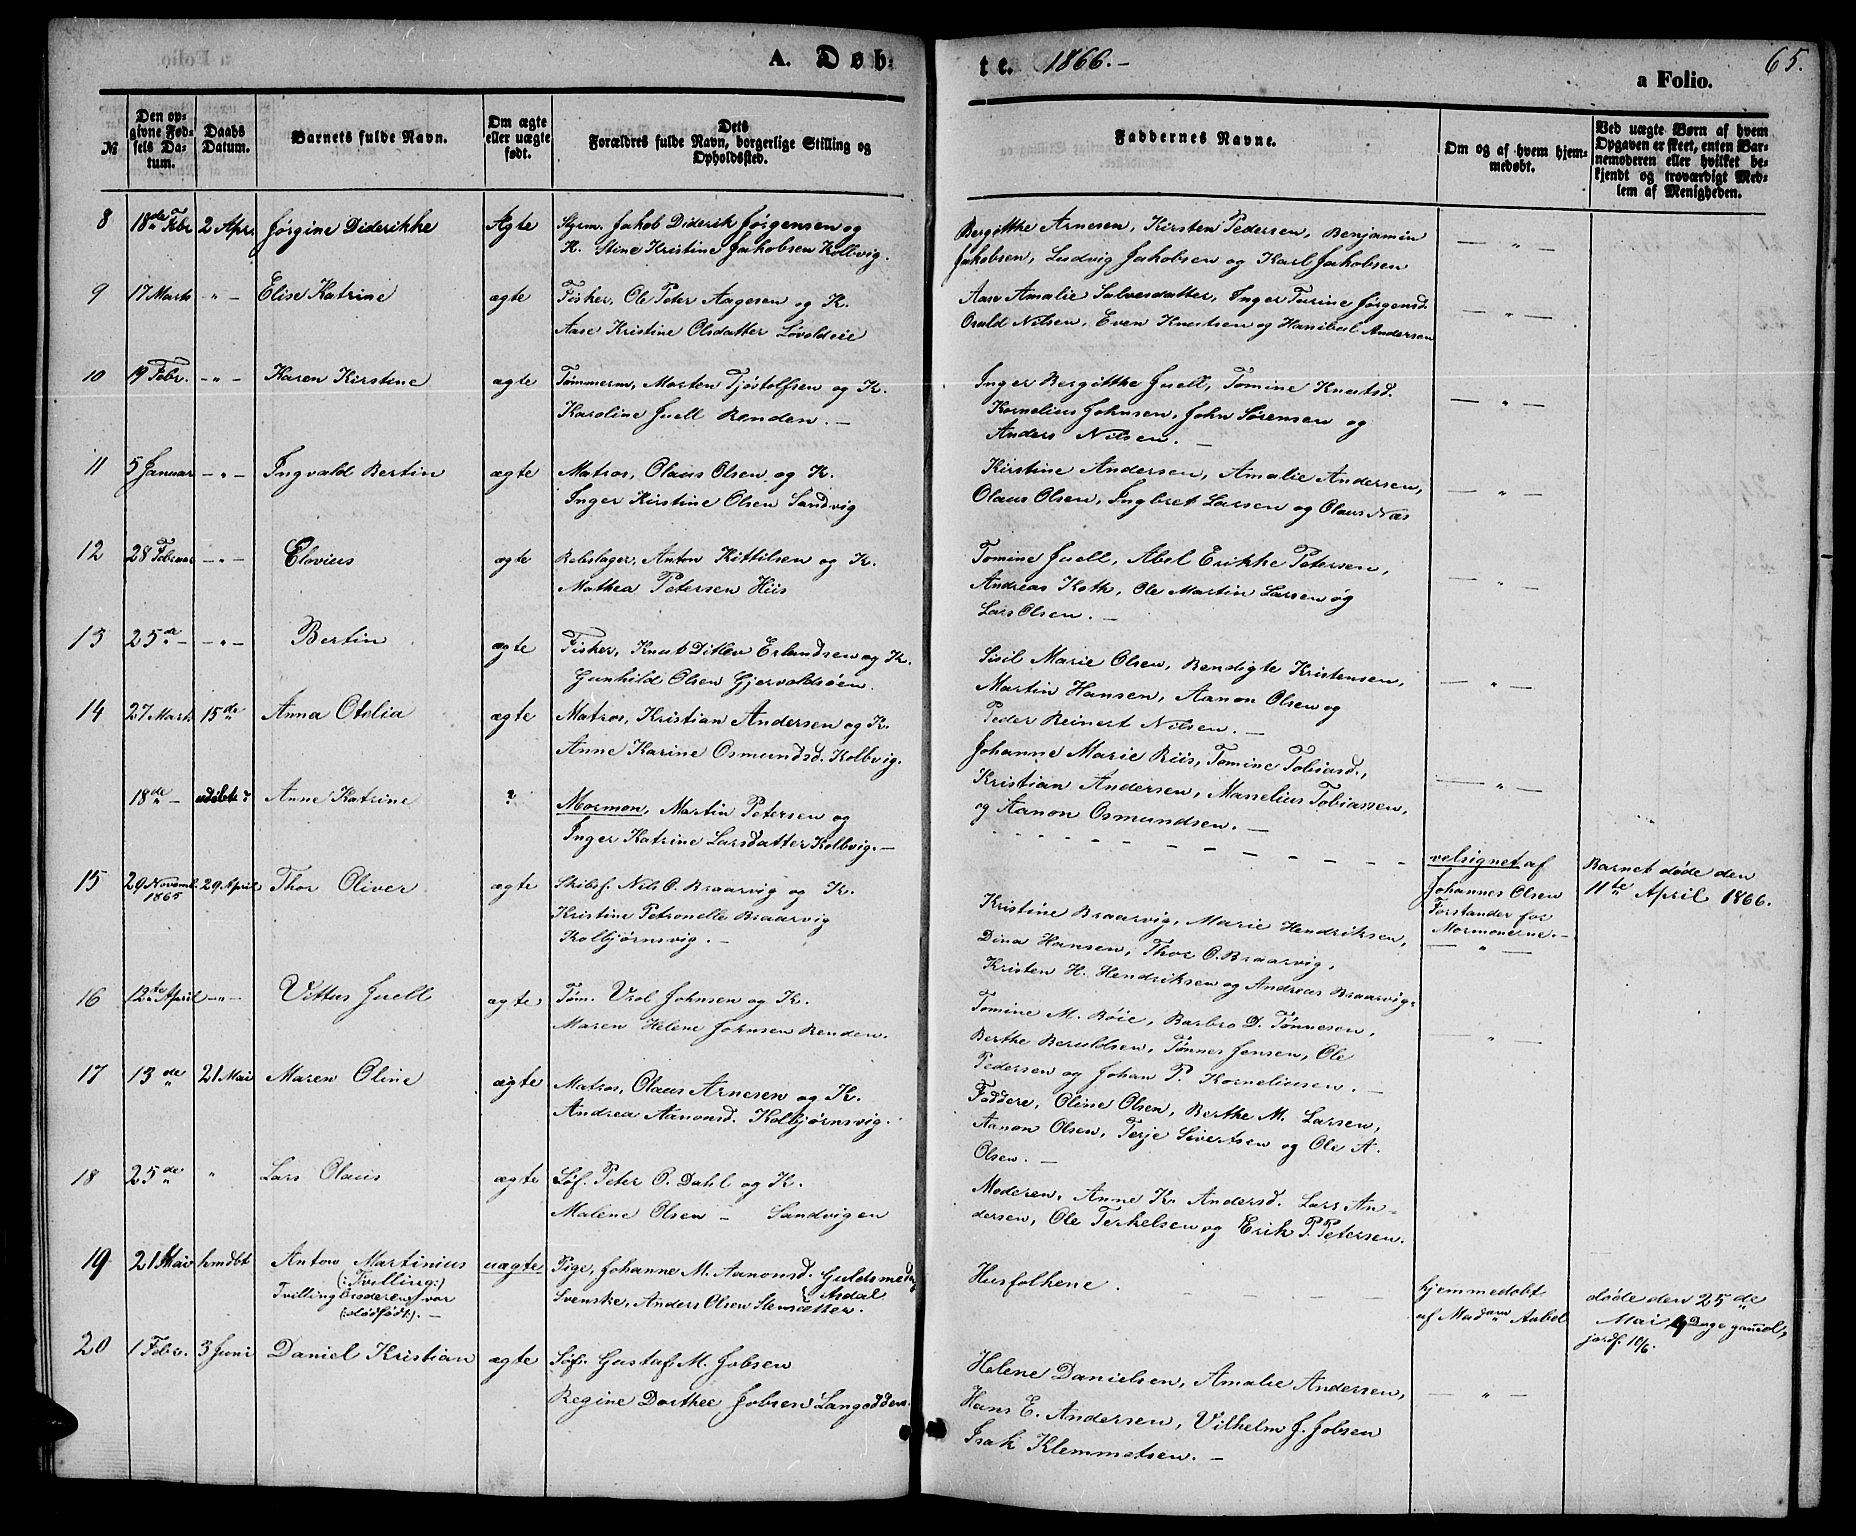 A. Døb-
te. 1866.-
65.
a Folio.
№
Den op-
givne Fød-
sels Da-
tum.
Daabs
Datum.
Barnets fulde Navn.
Om ægte
eller uægte
født.
Dets
Forældres fulde Navn, borgerlige Stilling og
Opholdssted.
Faddernes Navne.
Om og af hvem hjem-
medøbt.
Ved uægte Børn af hvem
Opgaven er skeet, enten Bar-
nemoderen eller hvilket be-
kjendt og troværdigt Med-
lem af Menigheden.
8 18de Febr 2 Apr. Jørgine Diderikke Ægte Styrm. Jakob Diderik Jørgensen og
K. Stine Kristine Jakobsen Kolbvig.
Bergitthe Arnesen, Kirsten Pedersen, Benjamin
Jakobsen, Ludvig Jakobsen og Karl Jakobsen
— " —
9 17 Marts " — Elise Katrine ægte Fisker, Ole Peter Aagesen og K.
Aase Kristine Olsdatter Løvoldeie
Aase Amalie Salvesdatter, Inger Turine Jørgensd.
Osuld Nilsen, Even Knutsen og Hanibal Andersen
— " —
10 19 Febr. — " — Karen Kirstine ægte Tømmerm, Morten Tjøstolfsen og K.
Karoline Juell Renden. —
Inger Bergitthe Juell, Tomine Knutsd.
Kornelius Johnsen, John Sørensen og
Anders Nilsen. —
— " —
11 5 Januar — " — Ingvald Bertin ægte Matros, Olaus Olsen og K.
Inger Kirstine Olsen Sandvig
Kirstine Andersen, Amalie Andersen,
Olaus Olsen, Ingbret Larsen og Olaus Næs
— " —
12 28 Februar — " — Elovius ægte Rebslager, Anton Kittilsen og K.
Mathea Petersen Hiis
Tomine Juell, Abel Erikke Petersen,
Andreas Koth, Ole Martin Larsen og
Lars Olsen. —
— " —
13 25de — — " — Bertin ægte Fisker, Knut Ditlev Erlandsen og K.
Gunhild Olsen Gjervoldsøen.
Sisil Marie Olsen, Bendigte Kristensen,
Martin Hansen, Aanon Olsen og
Peder Reinert Nilsen. —
— " —
14 27 Marts 15de Anna Otelia ægte Matros, Kristian Andersen og K.
Anne Karine Osmundsd. Kolbvig.
Johanne Marie Riis, Tomine Tobiasd.,
Kristian Andersen, Masselius Tobiassen,
og Aanon Osmundsen. —
— " —
18de — Anne Katrine ? Mormon, Martin Petersen og
Inger Katrine Larsdatter Kolbvig. —
velsignet af
Johannes Olsen
Forstander for
Mormonerne. —
Barnet døde den
11te April 1866.
15 29 Novemb. 1865 29 April Thor Oliver ægte Skibsf. Nils O. Braarvig og K.
Kristine Petronelle Braarvig
Kolbjørnsvig. —
Kristine Braarvig, Marie Hendriksen,
Dina Hansen, Thor O. Braarvig,
Kristen H. Hendriksen og Andreas Braarvig.
— " —
16 12te April — " — Vittus Juell ægte Tøm. Vrol Johnsen og K.
Maren Helene Johnsen Renden.
Tomine M. Bøie, Barbro D. Tønnesen,
Berthe Beruldsen, Tønnes Jensen, Ole
Pedersen og Johan P. Korneliusen. —
— " —
17 13de 21 Mai Maren Oline ægte Matros, Olaus Arnesen og K.
Andrea Aanonsd. Kolbjørnsvig.
Faddere, Oline Olsen, Berthe M. Larsen,
Aanon Olsen, Terje Sivertsen og Ole A.
Olsen. —
18 25de " Lars Olaus ægte Søf. Peter O. Dahl og K.
Malene Olsen — Sandvigen
Moderen, Anne K. Andersd. Lars An-
dersen, Ole Terkelsen og Erik P. Petersen.
19 21 Mai hmdbt Anton Martinius
(: Tvilling:)
Tvillingbroderen var
(: dødfødt:). —
uægte Pige, Johanne M. Aanonsd. Guldsmedng
Svenske, Anders Olsen Stensætter. Asdal
Husfolkene.
hjemmedøbt
af Madam Aabel
døde den 25de
Mai, 4 Dage gammel,
jordf. 10/6.
20 1 Febr. 3 Juni Daniel Kristian ægte Søf. Gustaf M. Jobsen
Regine Dorthee Jobsen Langodden.
Helene Danielsen, Amalie Andersen,
Hans E. Andersen, Vilhelm J. Jobsen
Isak Klemmetsen. —
— " —